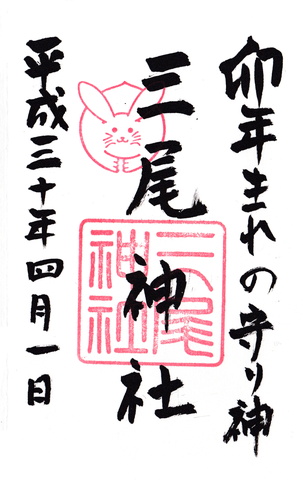 卯年生まれの守り神
三尾神社
三尾
神社
平成三十年四月一日